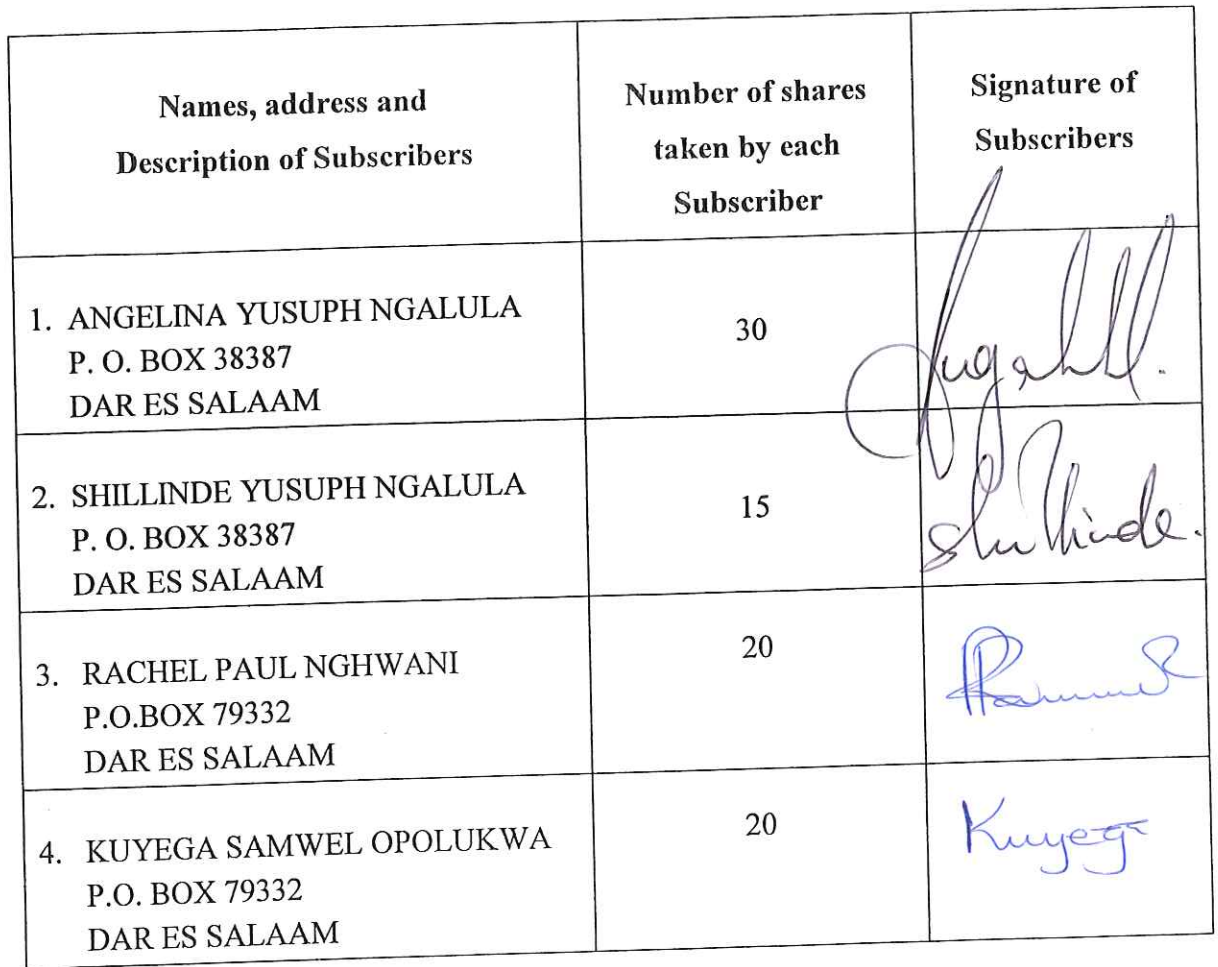 Names, address and
Description of Subscribers
Number of shares
taken by each
Subscriber
Signature of
Subscribers
1. ANGELINA YUSUPH NGALULA
P. O. BOX 38387
DAR ES SALAAM
30
2. SHILLINDE YUSUPH NGALULA
P. O. BOX 38387
DAR ES SALAAM
15
Shillinde.
3. RACHEL PAUL NGHWANI
P.O.BOX 79332
DAR ES SALAAM
20
4. KUYEGA SAMWEL OPOLUKWA
P.O. BOX 79332
DAR ES SALAAM
20
Kuyega